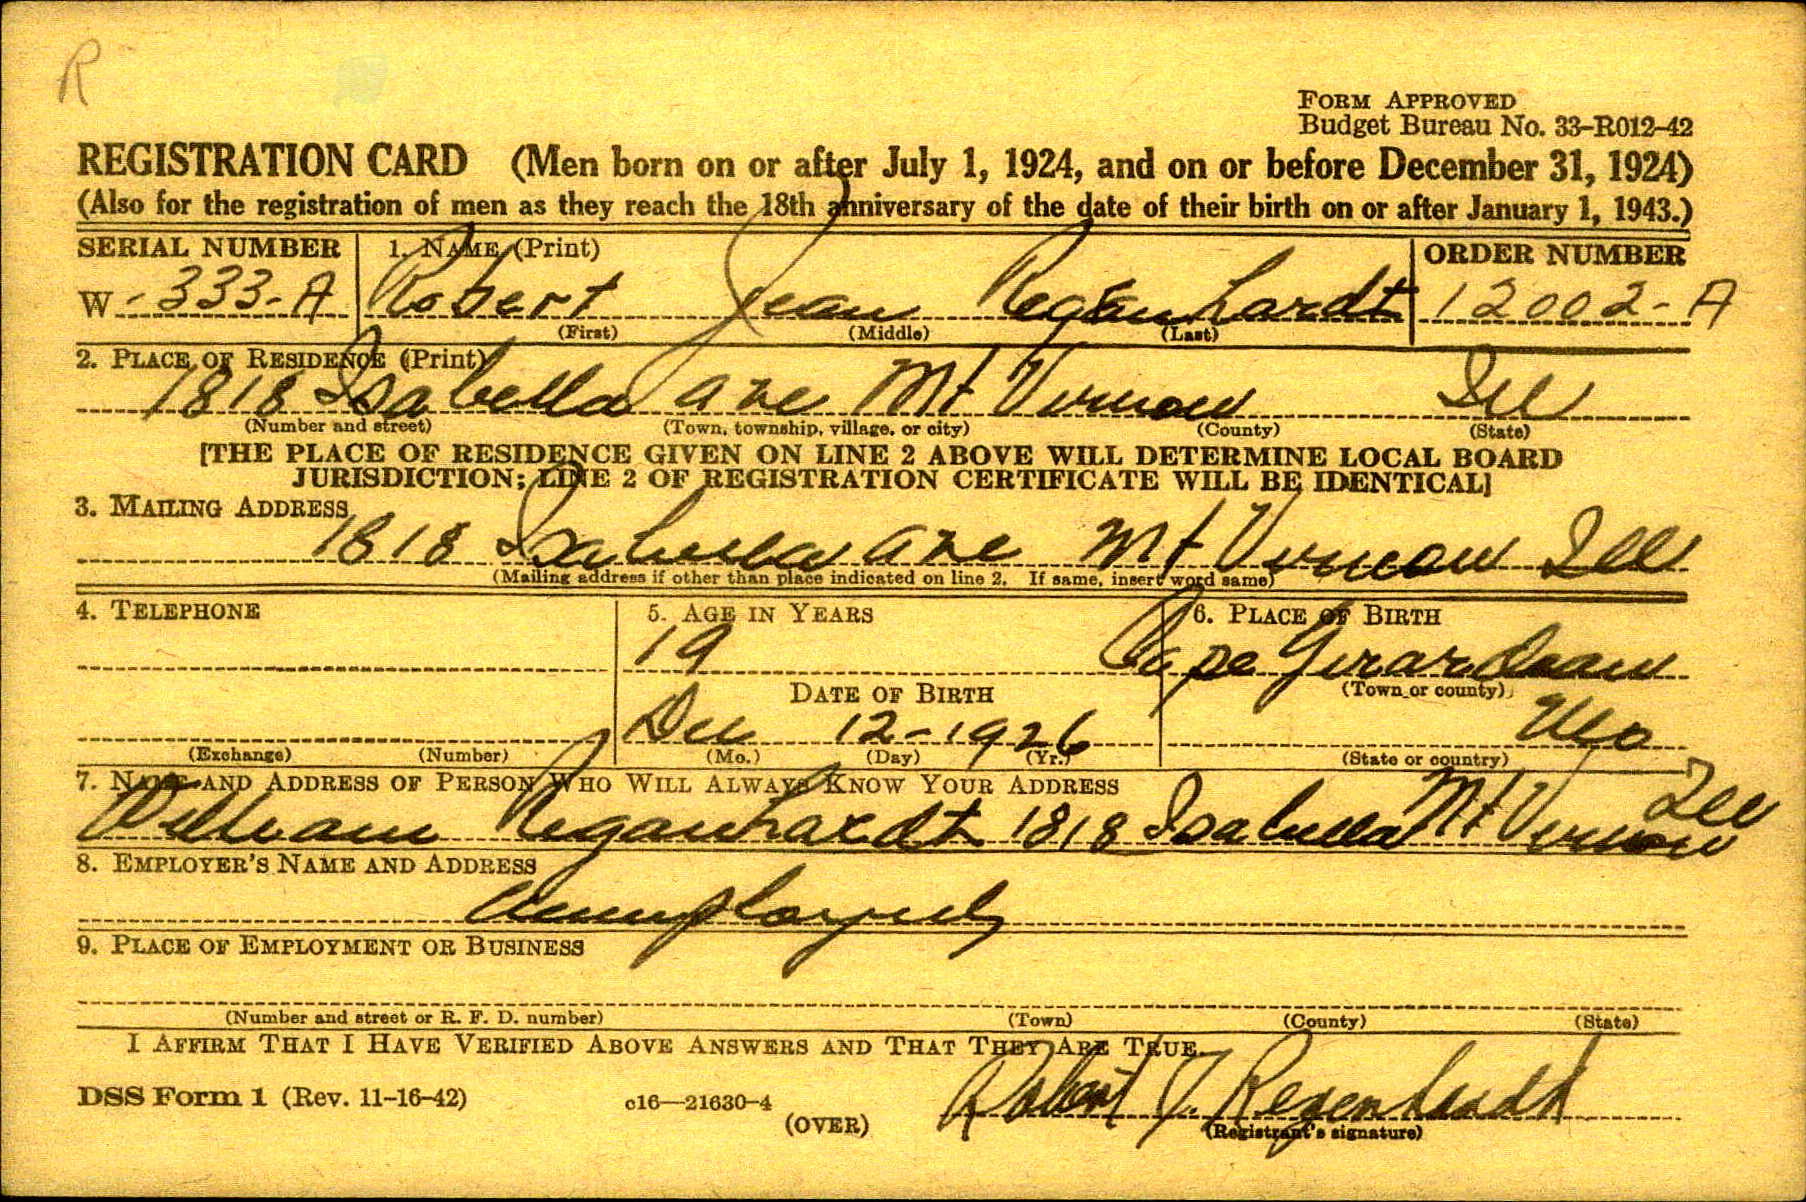 R
FORM APPROVED
Budget Bureau No. 33-R012-42
REGISTRATION CARD (Men born on or after July 1, 1924, and on or before December 31, 1924)
(Also for the registration of men as they reach the 18th anniversary of the date of their birth on or after January 1, 1943.)
SERIAL NUMBER 1. NAME (Print) ORDER NUMBER
W - 333-A Robert Jean Regenhardt 12002-A
(First) (Middle) (Last)
2. PLACE OF RESIDENCE (Print)
1818 Isabella ave Mt Vernon Ill
(Number and street) (Town, township, village, or city) (County) (State)
[THE PLACE OF RESIDENCE GIVEN ON LINE 2 ABOVE WILL DETERMINE LOCAL BOARD
JURISDICTION; LINE 2 OF REGISTRATION CERTIFICATE WILL BE IDENTICAL]
3. MAILING ADDRESS
1818 Isabella ave Mt Vernon Ill
(Mailing address if other than place indicated on line 2. If same, insert word same)
4. TELEPHONE 5. AGE IN YEARS 6. PLACE OF BIRTH
19 Cape Girardeau
DATE OF BIRTH (Town or county)
Dec 12-1926 Mo
(Exchange) (Number) (Mo.) (Day) (Yr.) (State or country)
7. NAME AND ADDRESS OF PERSON WHO WILL ALWAYS KNOW YOUR ADDRESS
William Reganhardt 1818 Isabella Mt Vernon Ill
8. EMPLOYER'S NAME AND ADDRESS
Unemployed
9. PLACE OF EMPLOYMENT OR BUSINESS
(Number and street or R. F. D. number) (Town) (County) (State)
I AFFIRM THAT I HAVE VERIFIED ABOVE ANSWERS AND THAT THEY ARE TRUE.
Robert J. Regenhardt
DSS Form 1 (Rev. 11-16-42) c16—21630-4
(OVER) (Registrant's signature)